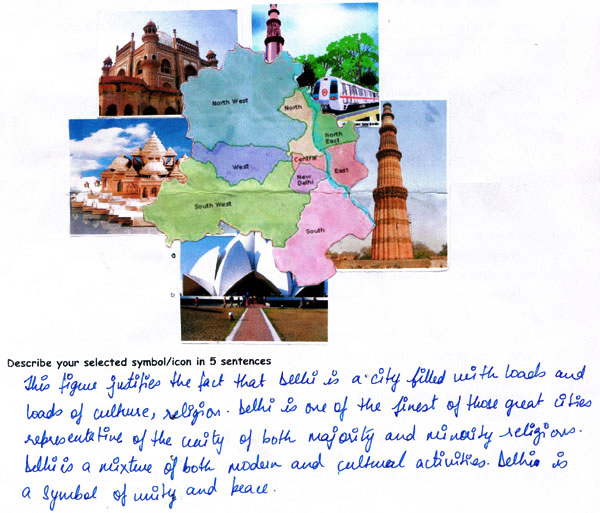 North West
North
North
East
Central
West
East
New
Delhi
South West
South
a
b
Describe your selected symbol/icon in 5 sentences
This figure justifies the fact that Delhi is a city filled with loads and
loads of culture, religion. Delhi is one of the finest of those great cities
representative of the unity of both majority and minority religions.
Delhi is a mixture of both modern and cultural activities. Delhi is
a symbol of unity and peace.